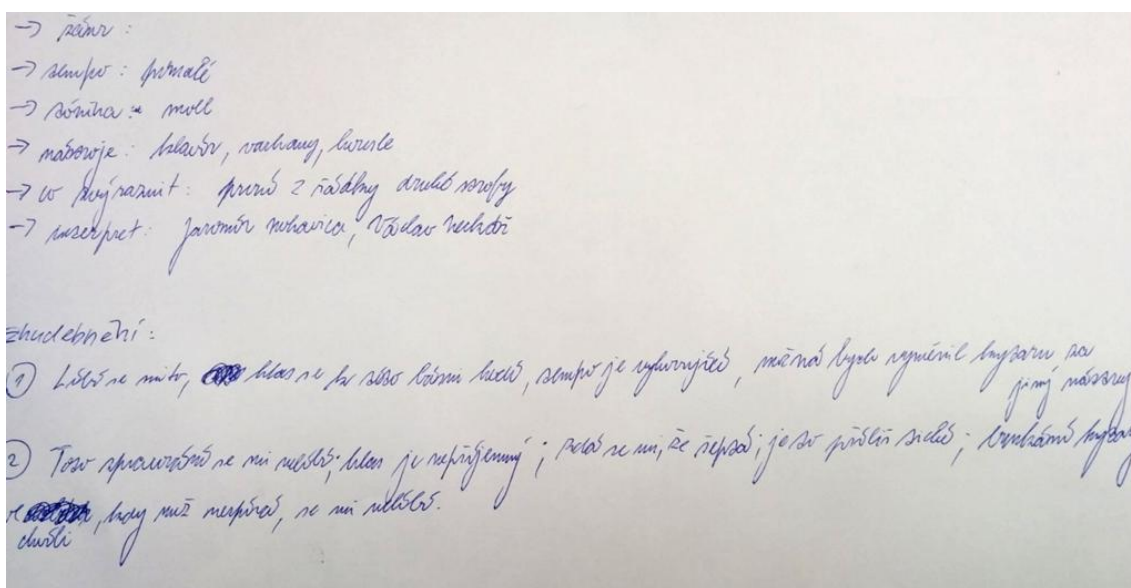 → žánr :
→ tempo : pomalé
→ tónina : moll
→ nástroje : klavír, varhany, housle
→ co zvýraznit : první 2 řádky druhé strofy
→ interpret : Jaromír Nohavica, Václav Neckář
zhudebnění :
① Líbí se mi to, hlas se k této básni hodí, tempo je vyhovující, možná bych vyměnil kytaru za
jiný nástroj
② Toto zpracování se mi nelíbí; hlas je nepříjemný ; zdá se mi, že šeptá; je to příliš tiché ; brnkání kytary
v , kdy muž nezpívá, se mi nelíbí.
chvíli